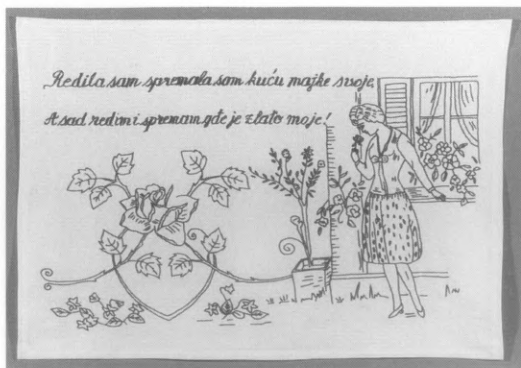 „Redila sam spremala sam kuću majke svoje,
A sad redim i spremam gde je zlato moje!